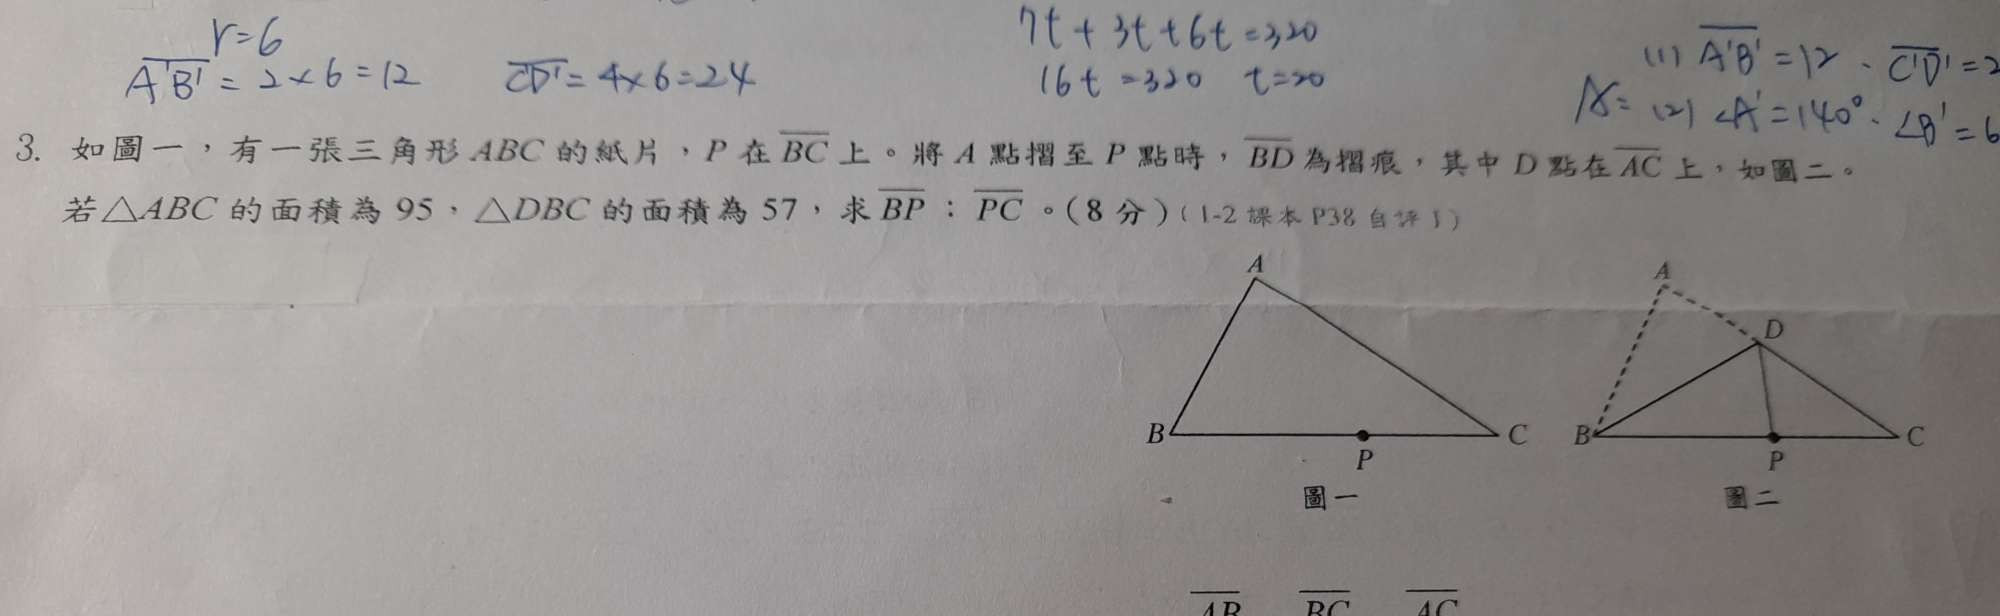 r=6
7t+3t+6t=320
A'B'=2×6=12
C'D'=4×6=24
16t=320 t=20
(1) A'B'=12、C'D'=2
A=(2)∠A'=140°、∠B'=6
3. 如圖一，有一張三角形ABC的紙片，P在BC上。將A點摺至P點時，BD為摺痕，其中D點在AC上，如圖二。
若△ABC的面積為95，△DBC的面積為57，求BP：PC。(8分)(1-2課本P38自評1)
A
A
D
B
P
C
B
P
C
圖一
圖二
AB BC AC